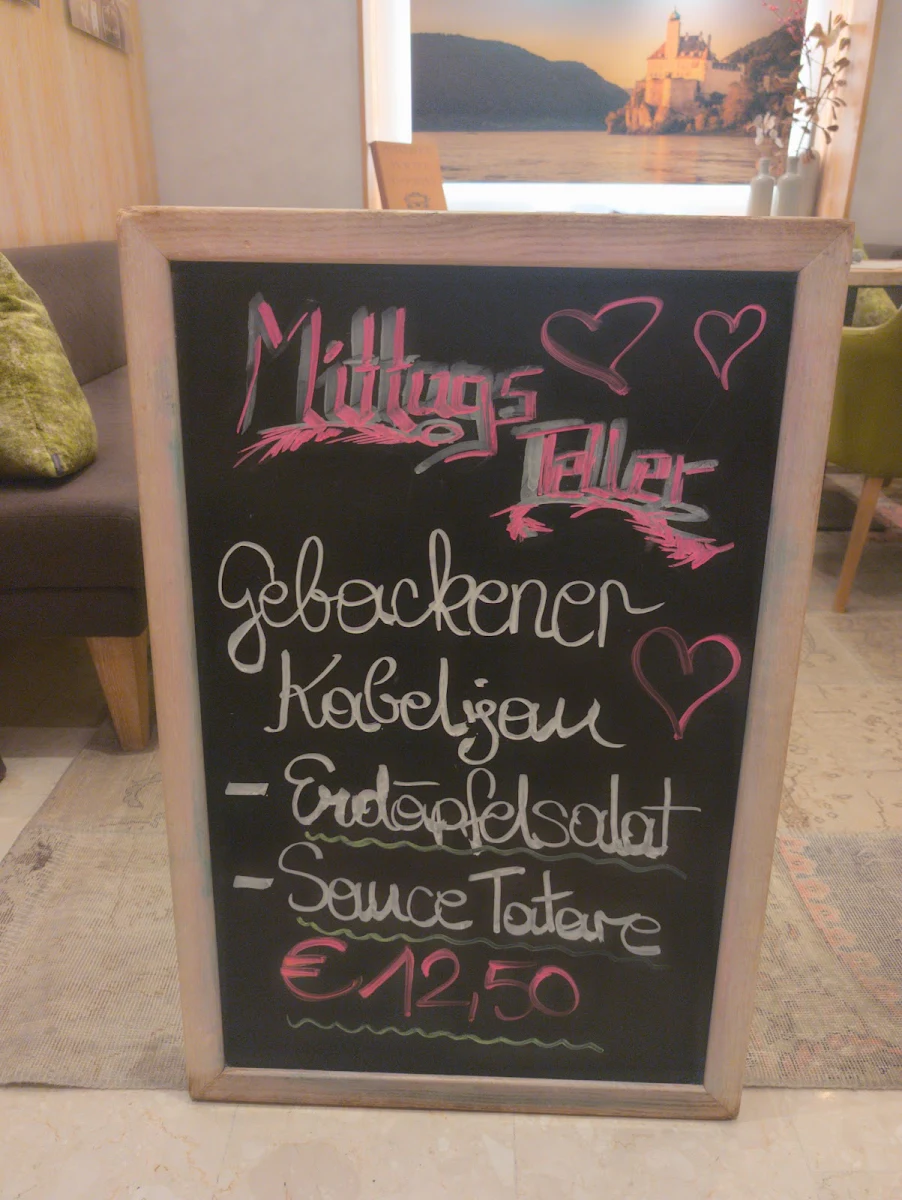 Mittags
Teller
Gebackener
Kabeljau
- Erdäpfelsalat
- Sauce Tatare
€ 12,50